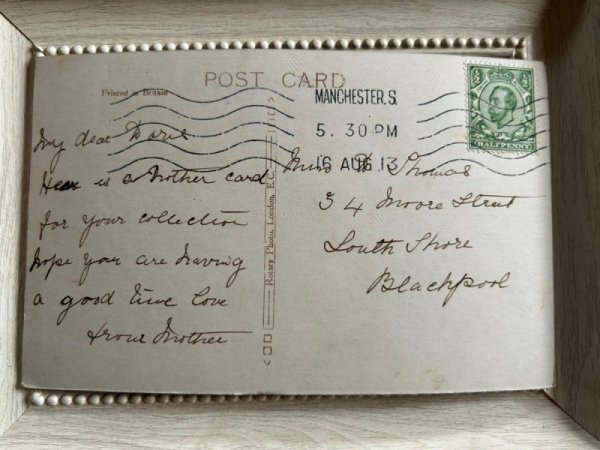 POST CARD
Printed in Britain
MANCHESTER.S.
5. 30 PM
16 AUG.13
HALFPENNY
My dear Doris
Hear is a nother card
for your collection
hope you are having
a good time love
from Mother
Rotary Photo, London, E.C.
Miss Thomas
34 Moore Street
South Shore
Blackpool